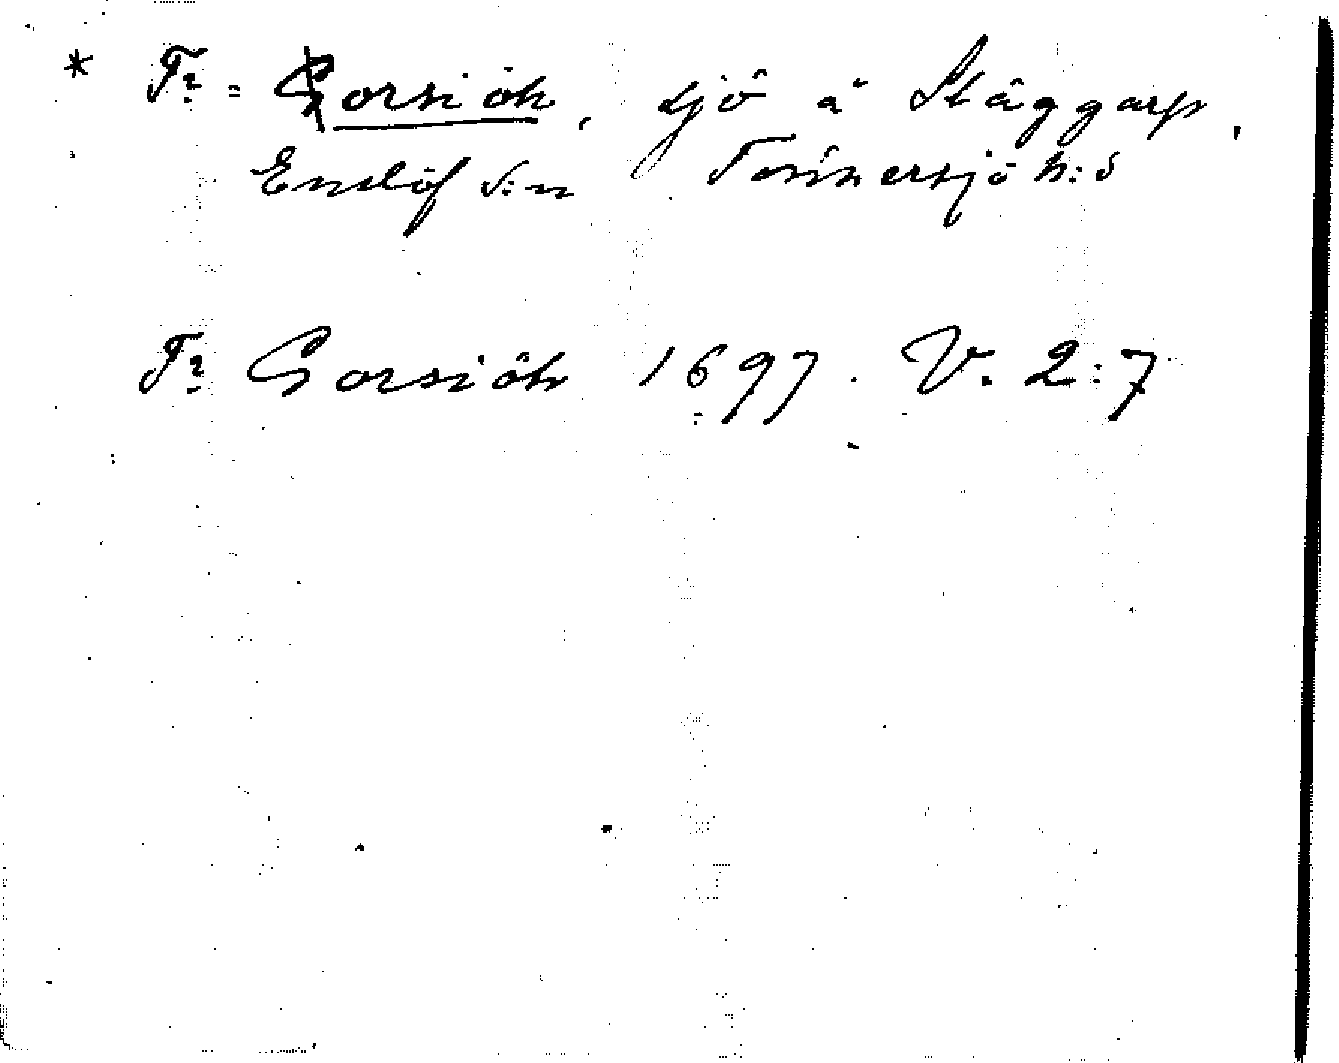 * Fr = Gorsiöh, sjö å Skäggarp,
Emslöf s:n Tönnersjö h:d
Fr Gorsiöh 1697. V. 2:7